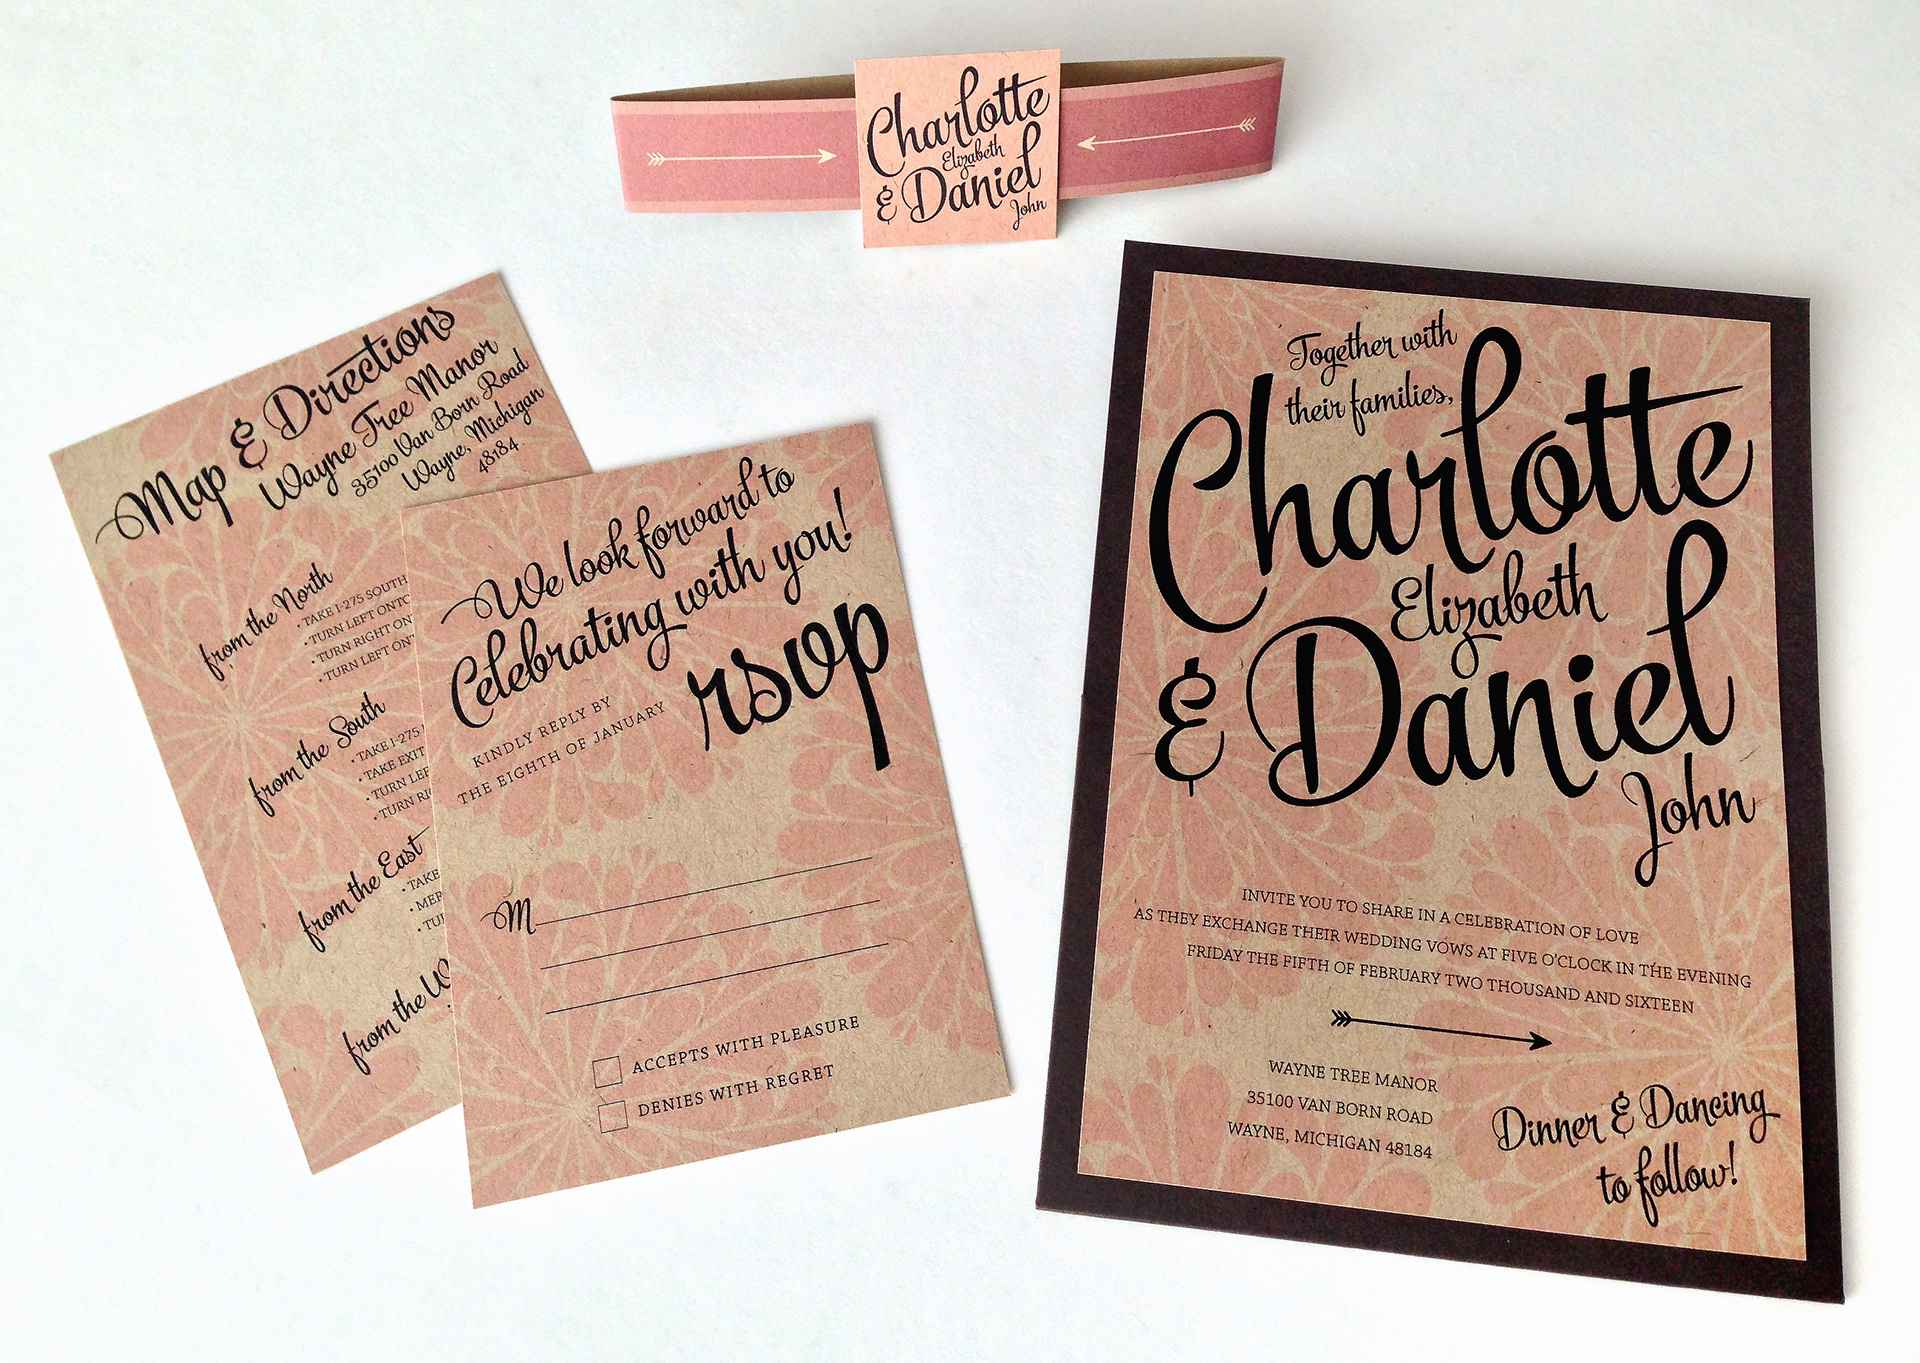 Charlotte
Elizabeth
& Daniel
John
Map & Directions
Wayne Tree Manor
35100 Van Born Road
Wayne, Michigan
48184
from the North
• TAKE I-275 SOUTH
• TURN LEFT ONTO
• TURN RIGHT ON
• TURN LEFT ON
from the South
• TAKE I-275
• TAKE EXIT
• TURN LEF
• TURN RI
from the East
• TAKE
• MER
• TU
from the W
We look forward to
Celebrating with you!
rsvp
KINDLY REPLY BY
THE EIGHTH OF JANUARY
M
ACCEPTS WITH PLEASURE
DENIES WITH REGRET
Together with
their families,
Charlotte
Elizabeth
& Daniel
John
INVITE YOU TO SHARE IN A CELEBRATION OF LOVE
AS THEY EXCHANGE THEIR WEDDING VOWS AT FIVE O'CLOCK IN THE EVENING
FRIDAY THE FIFTH OF FEBRUARY TWO THOUSAND AND SIXTEEN
WAYNE TREE MANOR
35100 VAN BORN ROAD
WAYNE, MICHIGAN 48184
Dinner & Dancing
to follow!